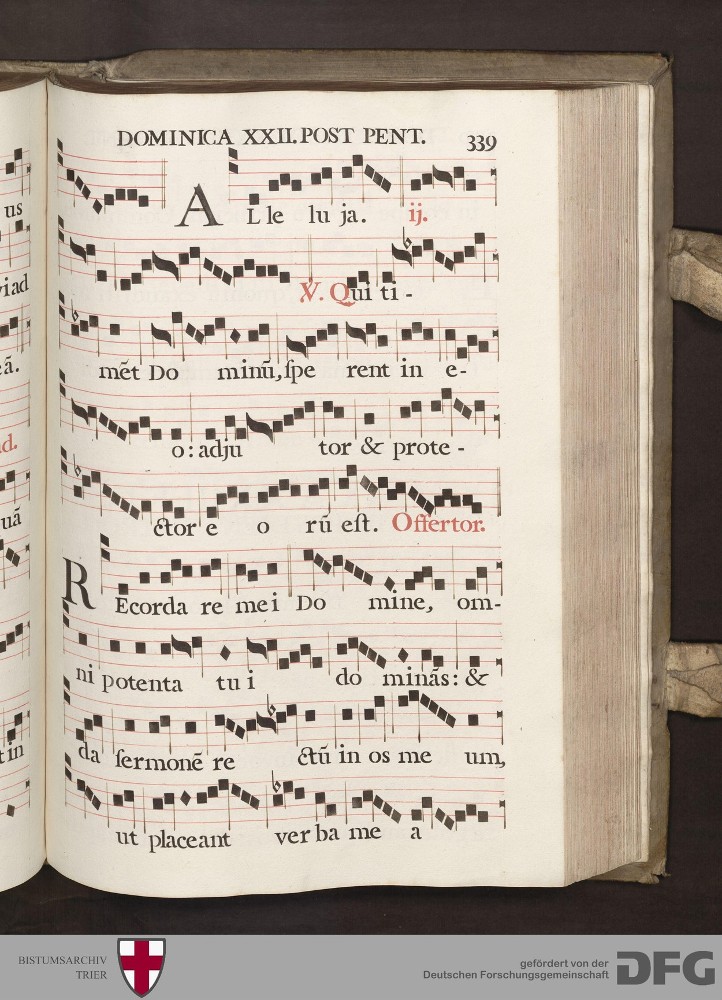 us
viad
eã.
uã
tin
DOMINICA XXII. POST PENT. 339
ALle lu ja. ij.
℣. Qui ti -
mẽt Do minũ, ſpe rent in e-
o: adju tor & prote -
ctor e o rũ eſt. Offertor.
REcorda re mei Domine, om-
ni potenta tu i do minãs: &
da ſermonẽ re ctũ in os me um,
ut placeant verba me a
BISTUMSARCHIV
TRIER
gefördert von der
Deutschen Forschungsgemeinschaft
DFG